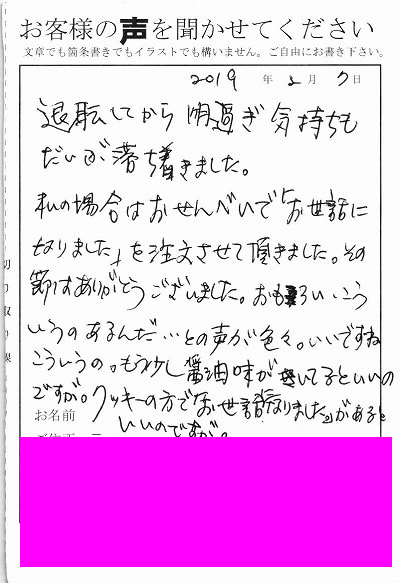 お客様の声を聞かせてください
文章でも箇条書きでもイラストでも構いません。ご自由にお書き下さい。
2019 年 2 月 7 日
退転してから 過ぎ 気持ちも
だいぶ落ち着きました。
私の場合はおせんべいで「お世話に
なりました」を注文させて頂きました。その
節はありがとうございました。おもしろい こう
いうのあるんだ…との声が色々。いいですね
こういうの。もう少し 醤油味が きいてるといいの
ですが。クッキーの方で「お世話になりました」があると
いいのですが。
お名前
切り取り線